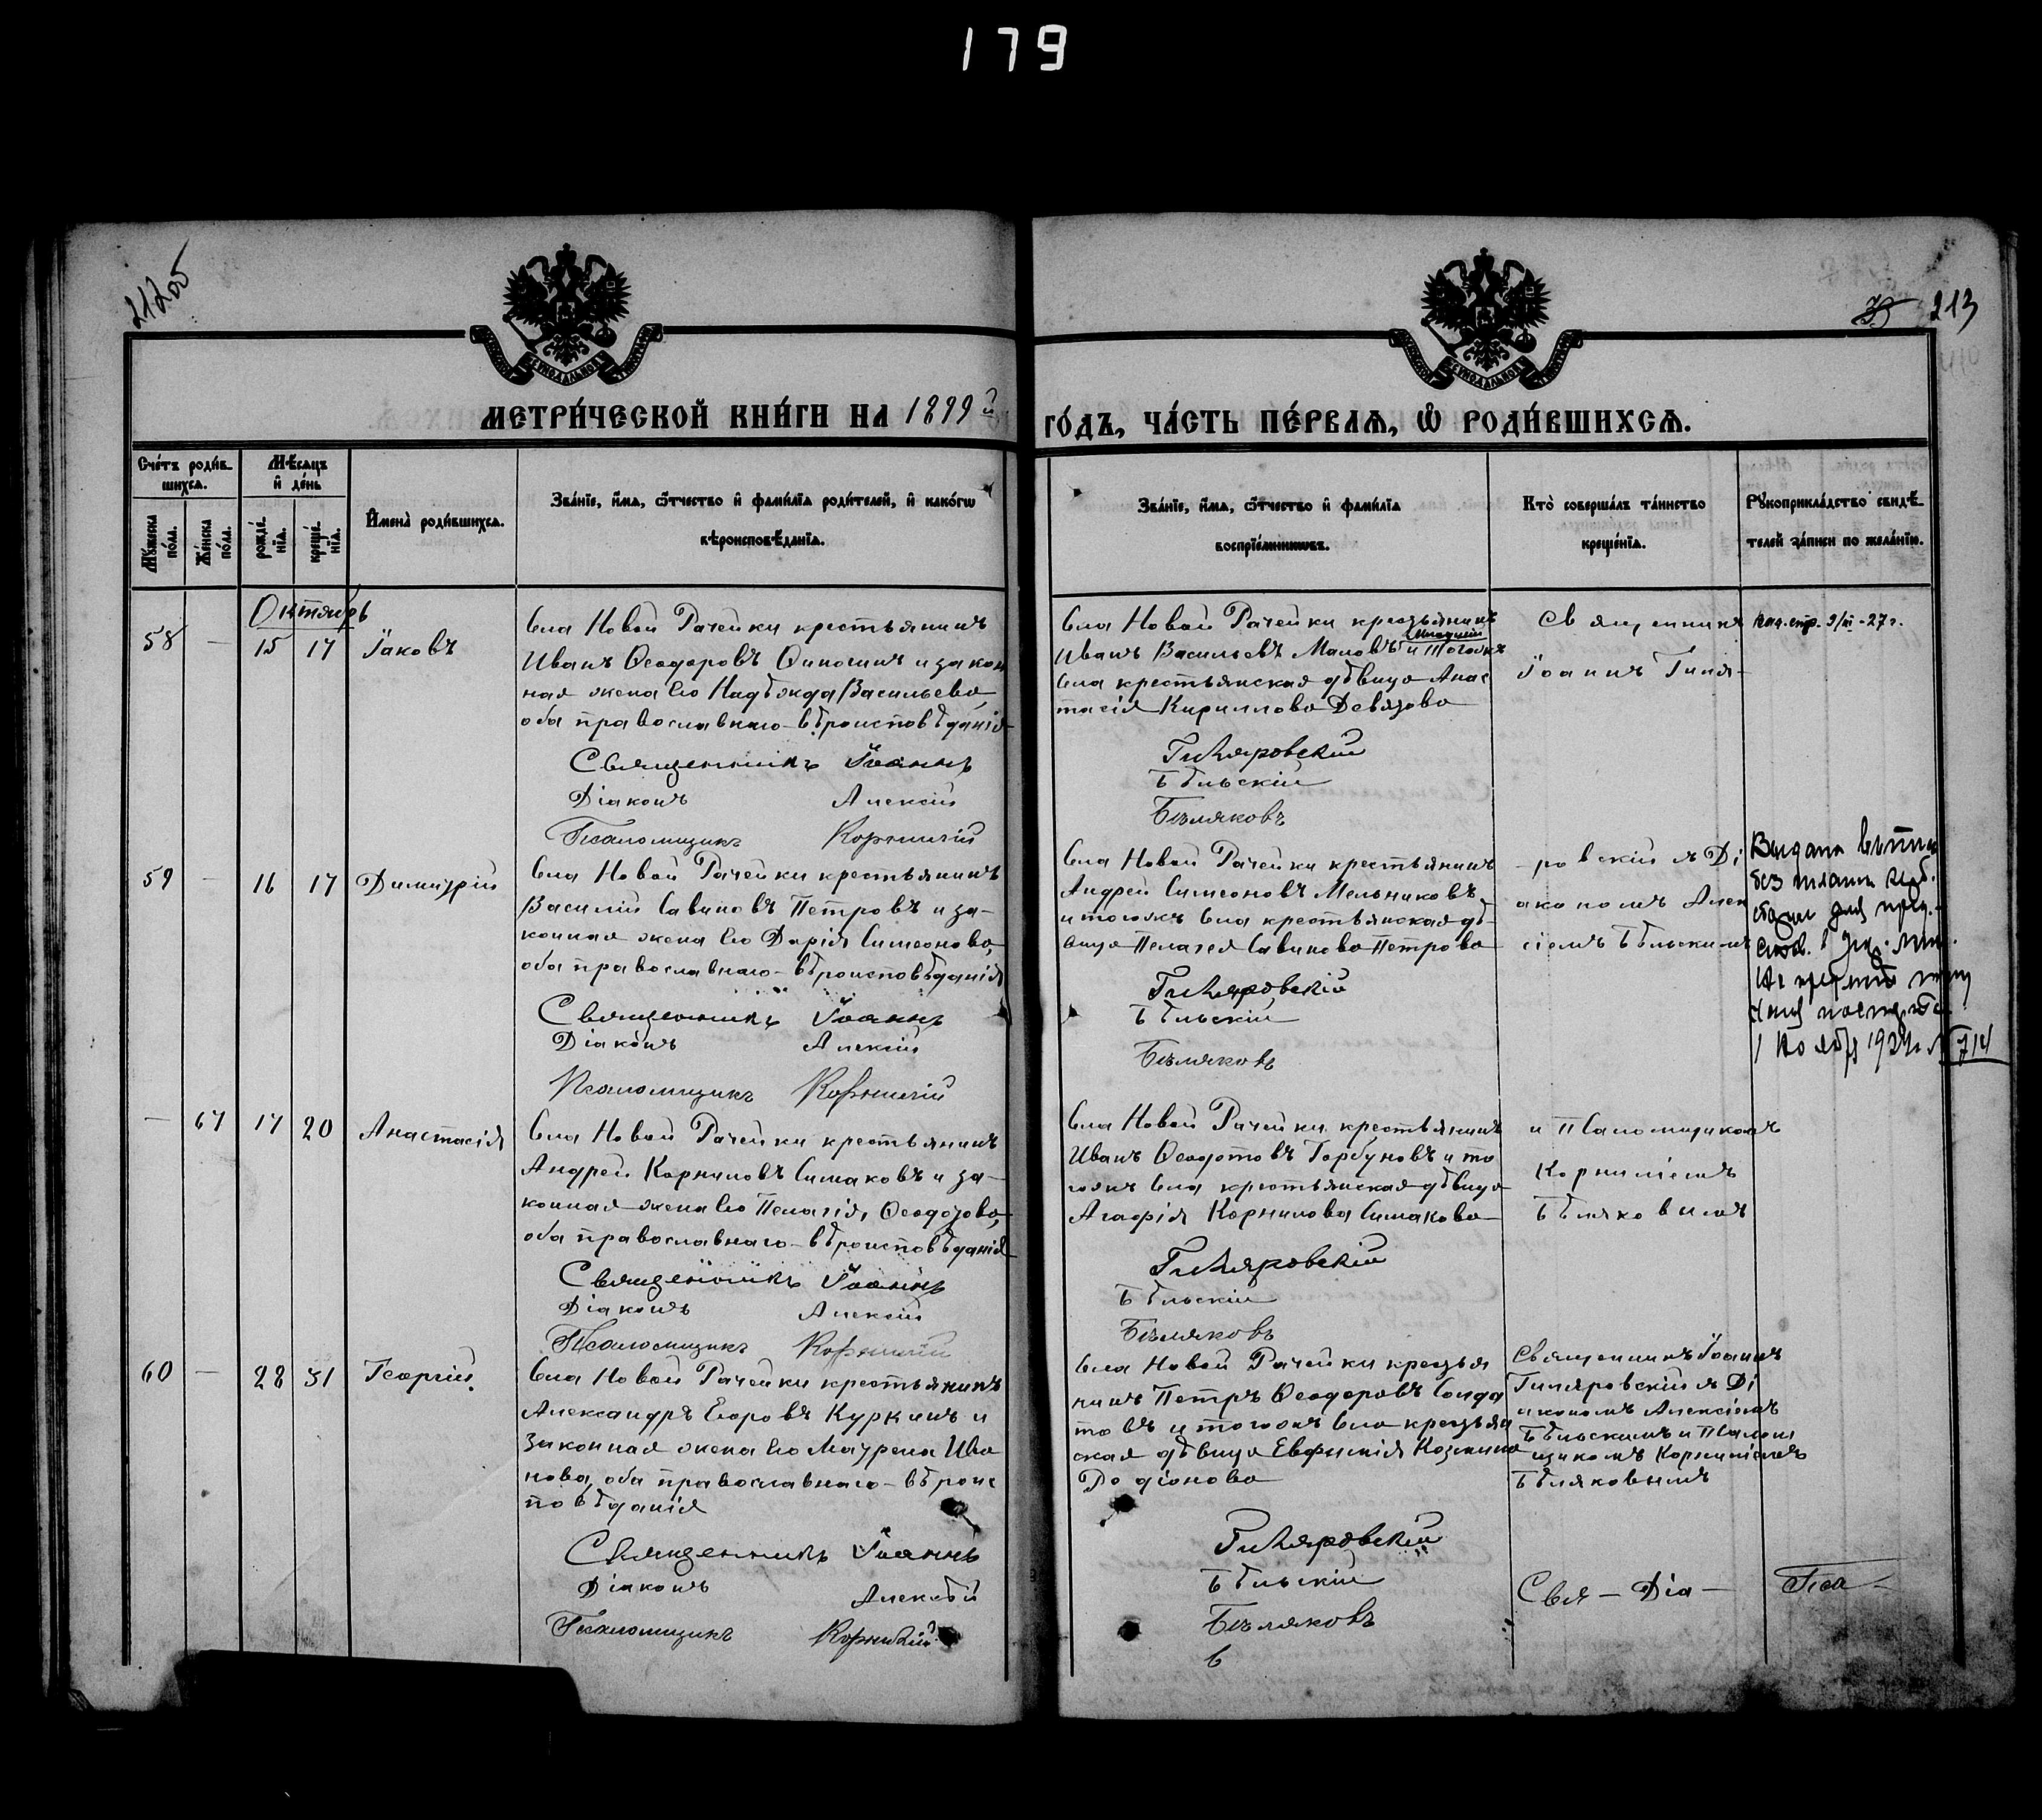 179
212об
213
МЕТРИ́ЧЕСКОЙ КНИ́ГИ НА 1899й
ГО́ДЪ, ЧА́СТЬ ПЕ́РВАѦ, Ѽ РОДИ́ВШИХСѦ.
Сче́тъ роди́в-
шихсѧ.
Мѣ́сѧцъ
и҆ де́нь
Мꙋ́жеска
по́ла.
Же́нска
по́ла.
рожде́-
нїѧ.
креще́-
нїѧ.
И҆мена̀ роди́вшихсѧ.
Зва́нїе, и҆́мѧ, ѻ҆́тчество и҆ фами́лїѧ роди́телей, и҆ како́гѡ
вѣроисповѣ́данїѧ.
Зва́нїе, и҆́мѧ, ѻ҆́тчество и҆ фами́лїѧ
воспрїе́мникѡвъ.
Кто̀ соверша́лъ та́инство
креще́нїѧ.
Рꙋкоприкла́дство свидѣ́-
телей за́писи по жела́нїю.
Октябрь
58 — 15 17 Іаковъ
Села Новой Рачейки крестьянинъ
Иванъ Ѳеодоровъ и закон
ная жена его Надѣжда Васильева,
оба православнаго-вѣроисповѣданія
Священникъ Іоаннъ
Діаконъ Алексій
Псаломщикъ Корнилій
Села Новой Рачейки крестьянинъ
Иванъ Васильевъ Маловъ и тогожъ
села крестьянская дѣвица Анас
тасія Кириллова Девятова
Гиляровскій
Бѣльскій
Бѣляковъ
Священникъ
Іоаннъ Гиля-
59 — 16 17 Димитрій
Села Новой Рачейки крестьянинъ
Василій Савиновъ Петровъ и за-
конная жена его Дарія Симеонова,
оба православнаго-вѣроисповѣданія
Священникъ Іоаннъ
Діаконъ Алексій
Псаломщикъ Корнилій
Села Новой Рачейки крестьянинъ
Андрей Симеоновъ Мельниковъ
и тогожъ села крестьянская дѣ-
вица Пелагея Савинова Петрова
Гиляровскій
Бѣльскій
Бѣляковъ
-ровскій съ Ді
акономъ Алек
сіемъ Бѣльскимъ
Выдана
без
714
— 67 17 20 Анастасія
Села Новой Рачейки крестьянинъ
Андрей Корниловъ Симаковъ и за-
конная жена его Пелагія Ѳеодорова,
оба православнаго-вѣроисповѣданія
Священникъ Іоаннъ
Діаконъ Алексій
Псаломщикъ Корнилій
Села Новой Рачейки крестьянинъ
Иванъ Ѳеодотовъ Горбуновъ и то
гожъ села крестьянская дѣвица
Агафія Корнилова Симакова
Гиляровскій
Бѣльскій
Бѣляковъ
и Псаломщикомъ
Корниліемъ
Бѣляковымъ
60 — 28 31 Георгій
Села Новой Рачейки крестьянинъ
Александръ Егоровъ Куркинъ и
законная жена его Маурена Ива
нова, оба православнаго-вѣроис
повѣданія
Священникъ Іоаннъ
Діаконъ Алексѣй
Псаломщикъ Корнилій
Села Новой Рачейки крестья
нинъ Петръ Ѳеодоровъ Солда
товъ и тогожъ села крестьян
ская дѣвица Евфимія Козмина
Родіонова
Гиляровскій
Бѣльскій
Бѣляковъ
Священникъ Іоаннъ
Гиляровскій съ Ді
акономъ Алексіемъ
Бѣльскимъ и Псалом
щикомъ Корниліемъ
Бѣляковымъ
Свя — Діа — Пса —